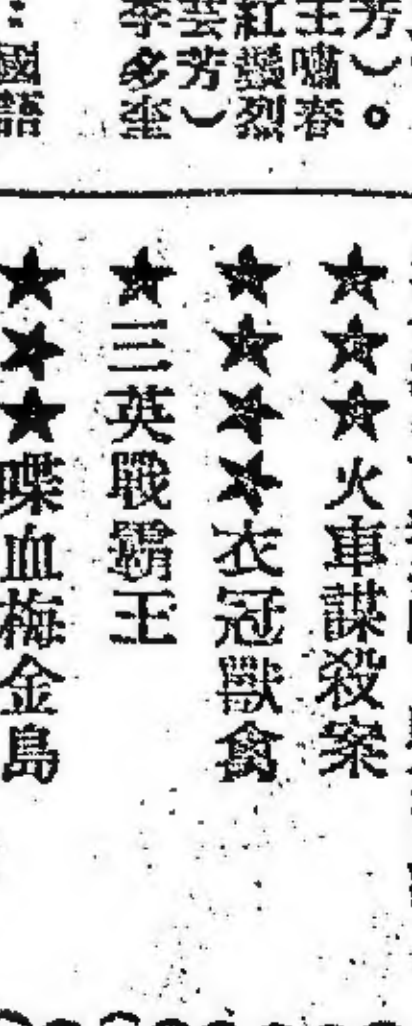 芳）。
王嘯春
紅鬃烈
芸芳）
李多奎
：國語
★★★火車謀殺案
★★★★衣冠獸禽
★三英戰霸王
★★★喋血梅金島